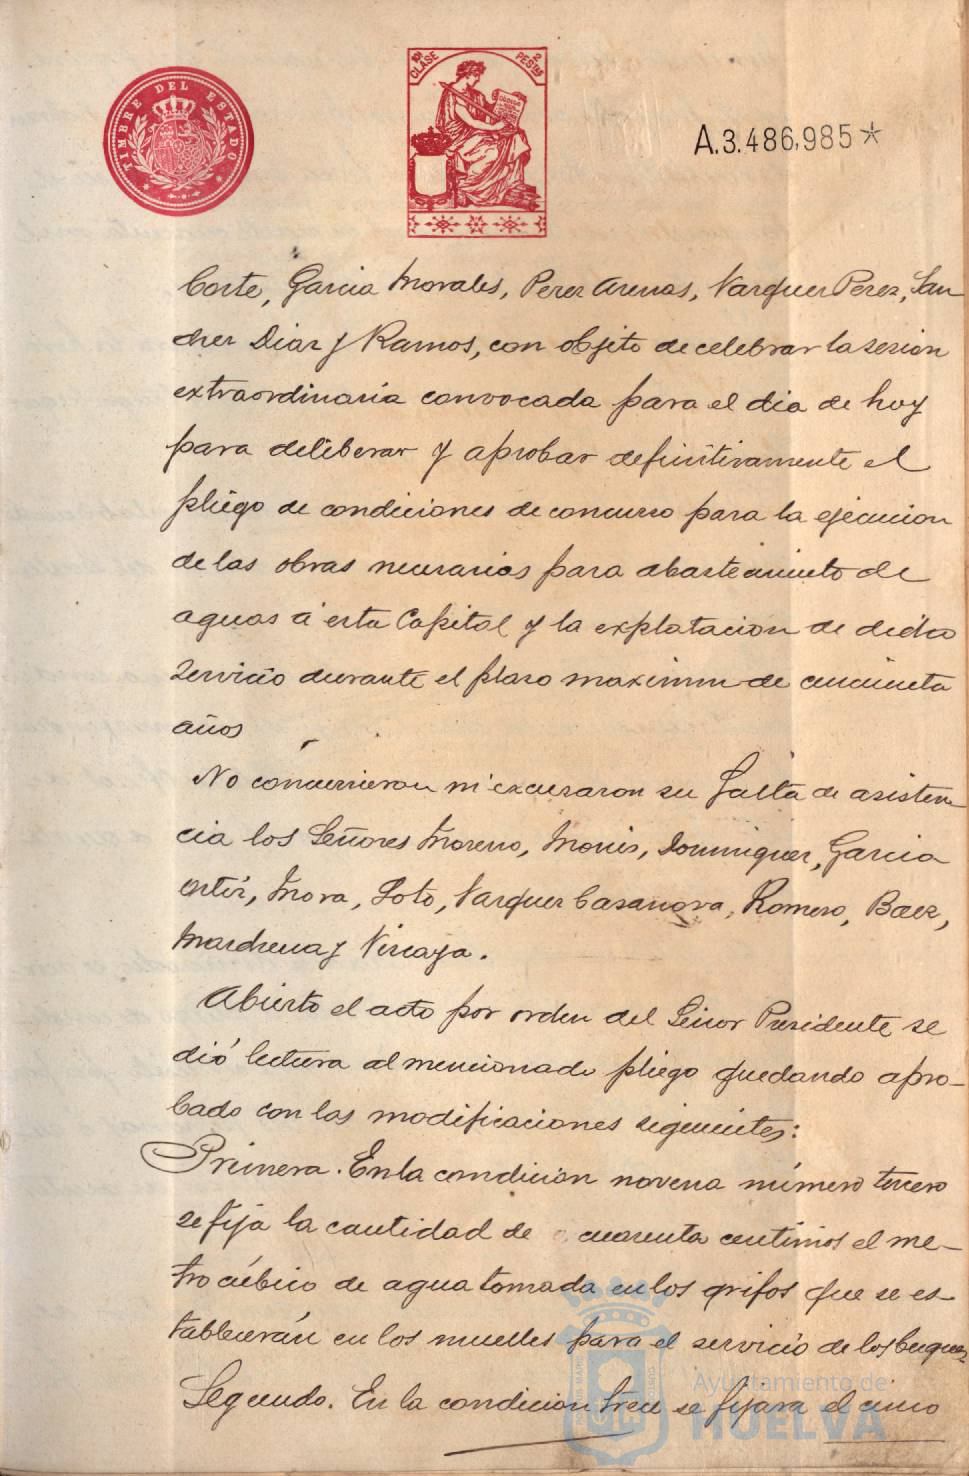 TIMBRE DEL ESTADO
10ª CLASE 2 PESTAS
A.3.486,985*
Corte, Garcia Morales, Perez Arenas, Vazquez Perez, San
chez Diaz y Ramos, con objeto de celebrar la sesion
extraordinaria convocada para el dia de hoy
para deliberar y aprobar definitivamente el
pliego de condiciones de concurso para la ejecucion
de las obras necesarias para abastecimiento de
aguas á esta Capital y la explotacion de dicho
servicio durante el plazo maximun de cincuenta
años
No concurrieron ni excusaron su falta de asisten
cia los Señores Moreno, Monis, Dominguez, Garcia
Ortiz, Mora, Soto, Vazquez Casanova, Romero, Baez,
Marchena y Vizcaya.
Abierto el acto por orden del Señor Presidente se
dió lectura al mencionado pliego quedando apro-
bado con las modificaciones siguientes:
Primera. En la condicion novena número tercero
se fija la cantidad de cuarenta centimos el me-
tro cúbico de agua tomada en los grifos que se es-
tablecerán en los muelles para el servicio de los buques
Segundo. En la condicion trece se fijara el cinco
Ayuntamiento de
HUELVA